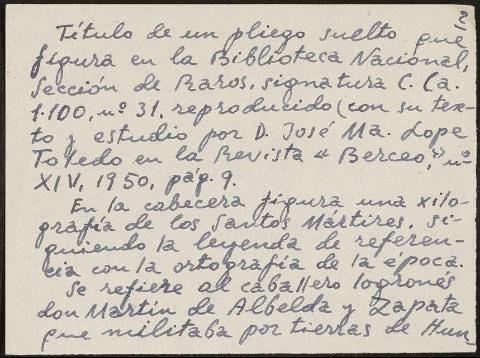 2
Título de un pliego suelto que
figura en la Biblioteca Nacional,
Sección de Raros, signatura C. Ca.
1.100, nº 31, reproducido (con su tex-
to y estudio por D. José Ma. Lope
Toledo en la Revista "Berceo," nº
XIV, 1950, pág. 9.
En la cabecera figura una xilo-
grafía de los Santos Mártires, si-
guiendo la leyenda de referen-
cia con la ortografía de la época.
Se refiere al caballero logroñés
don Martín de Albelda y Zapata
que militaba por tierras de Hun-